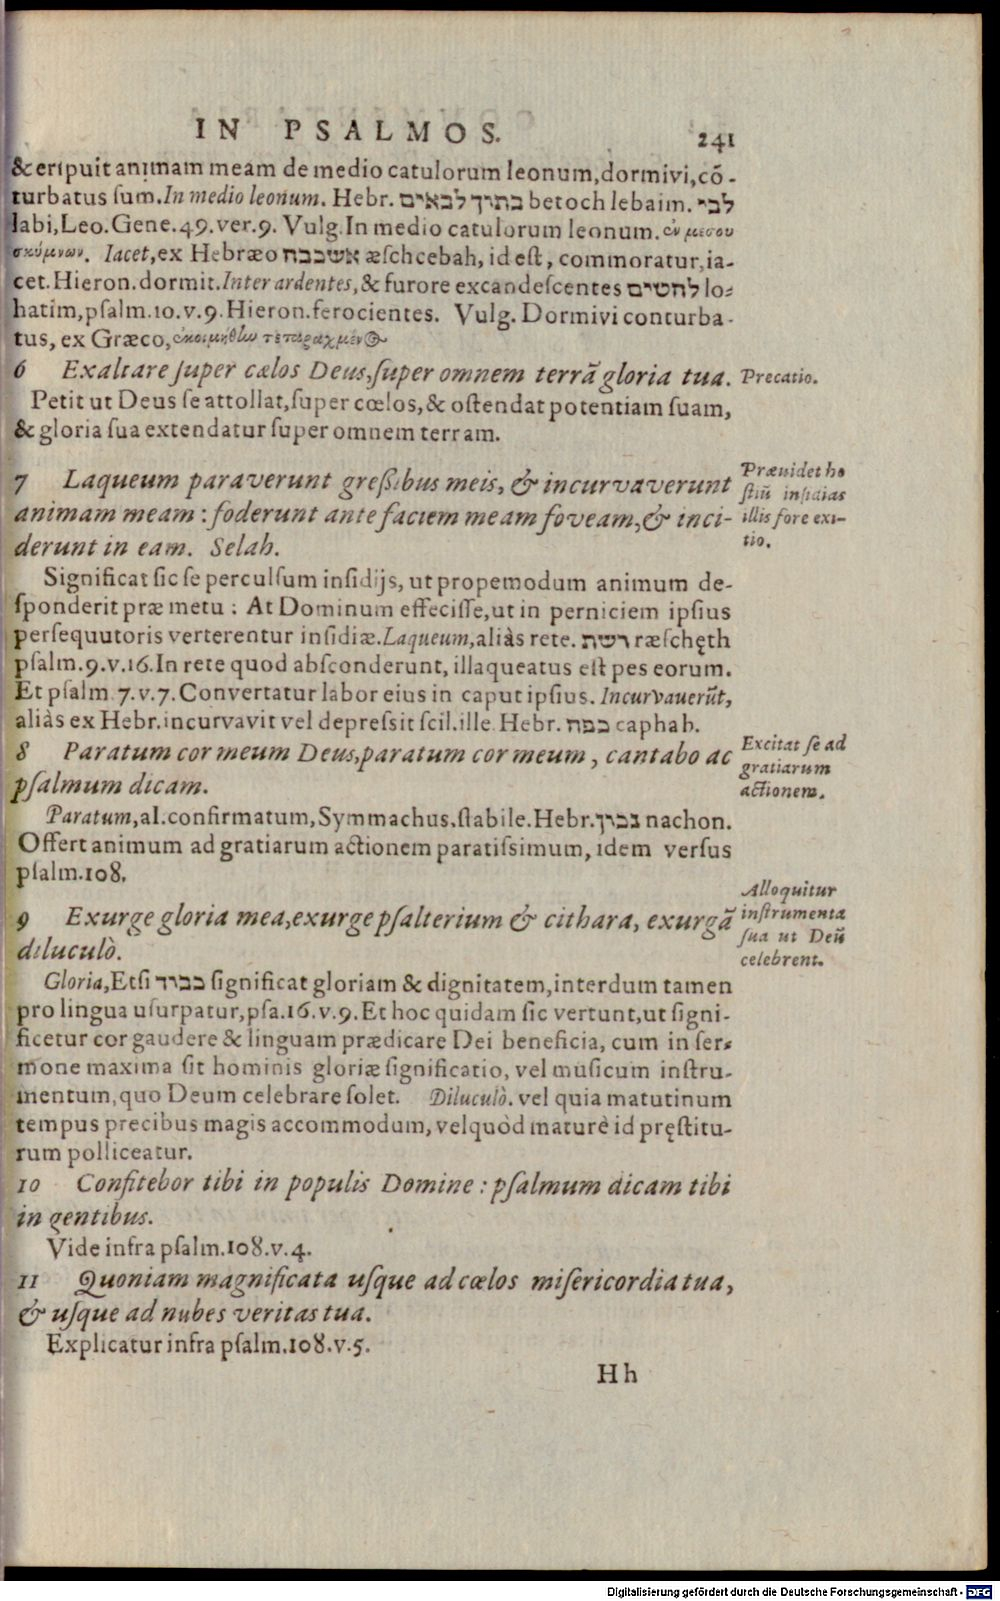 IN PSALMOS. 241
& eripuit animam meam de medio catulorum leonum, dormivi, cō-
turbatus sum. In medio leonum. Hebr. בתוך לבאים betoch lebaim. לבי
labi, Leo. Gene. 49. ver. 9. Vulg. In medio catulorum leonum. ἐν μέσου
σκύμνων. Iacet, ex Hebræo אשכבה æschcebah, id est, commoratur, ia-
cet. Hieron. dormit. Inter ardentes, & furore excandescentes להטים lo-
hatim, psalm. 10. v. 9. Hieron. ferocientes. Vulg. Dormivi conturba-
tus, ex Græco,
6 Exaltare super cœlos Deus, super omnem terrã gloria tua.
Precatio.
Petit ut Deus se attollat, super cœlos, & ostendat potentiam suam,
& gloria sua extendatur super omnem terram.
7 Laqueum paraverunt gressibus meis, & incurvaverunt
animam meam : foderunt ante faciem meam foveam, & inci-
derunt in eam. Selah.
Prævidet ho
stiũ insidias
illis fore exi-
tio.
Significat sic se perculsum insidijs, ut propemodum animum de-
sponderit præ metu : At Dominum effecisse, ut in perniciem ipsius
persequutoris verterentur insidiæ. Laqueum, aliàs rete. רשת ræschęth
psalm. 9. v. 16. In rete quod absconderunt, illaqueatus est pes eorum.
Et psalm. 7. v. 7. Convertatur labor eius in caput ipsius. Incurvauerũt,
aliàs ex Hebr. incurvavit vel depressit scil. ille. Hebr. כפה caphah.
8 Paratum cor meum Deus, paratum cor meum, cantabo ac
psalmum dicam.
Excitat se ad
gratiarum
actionem.
Paratum, al. confirmatum, Symmachus. stabile. Hebr. נכון nachon.
Offert animum ad gratiarum actionem paratissimum, idem versus
psalm. 108.
9 Exurge gloria mea, exurge psalterium & cithara, exurgã
diluculò.
Alloquitur
instrumenta
sua ut Deũ
celebrent.
Gloria, Etsi כבוד significat gloriam & dignitatem, interdum tamen
pro lingua usurpatur, psa. 16. v. 9. Et hoc quidam sic vertunt, ut signi-
ficetur cor gaudere & linguam prædicare Dei beneficia, cum in ser-
mone maxima sit hominis gloriæ significatio, vel musicum instru-
mentum, quo Deum celebrare solet. Diluculò. vel quia matutinum
tempus precibus magis accommodum, vel quòd maturè id pręstitu-
rum polliceatur.
10 Confitebor tibi in populis Domine : psalmum dicam tibi
in gentibus.
Vide infra psalm. 108. v. 4.
11 Quoniam magnificata usque ad cœlos misericordia tua,
& usque ad nubes veritas tua.
Explicatur infra psalm. 108. v. 5.
Hh
Digitalisierung gefördert durch die Deutsche Forschungsgemeinschaft - DFG